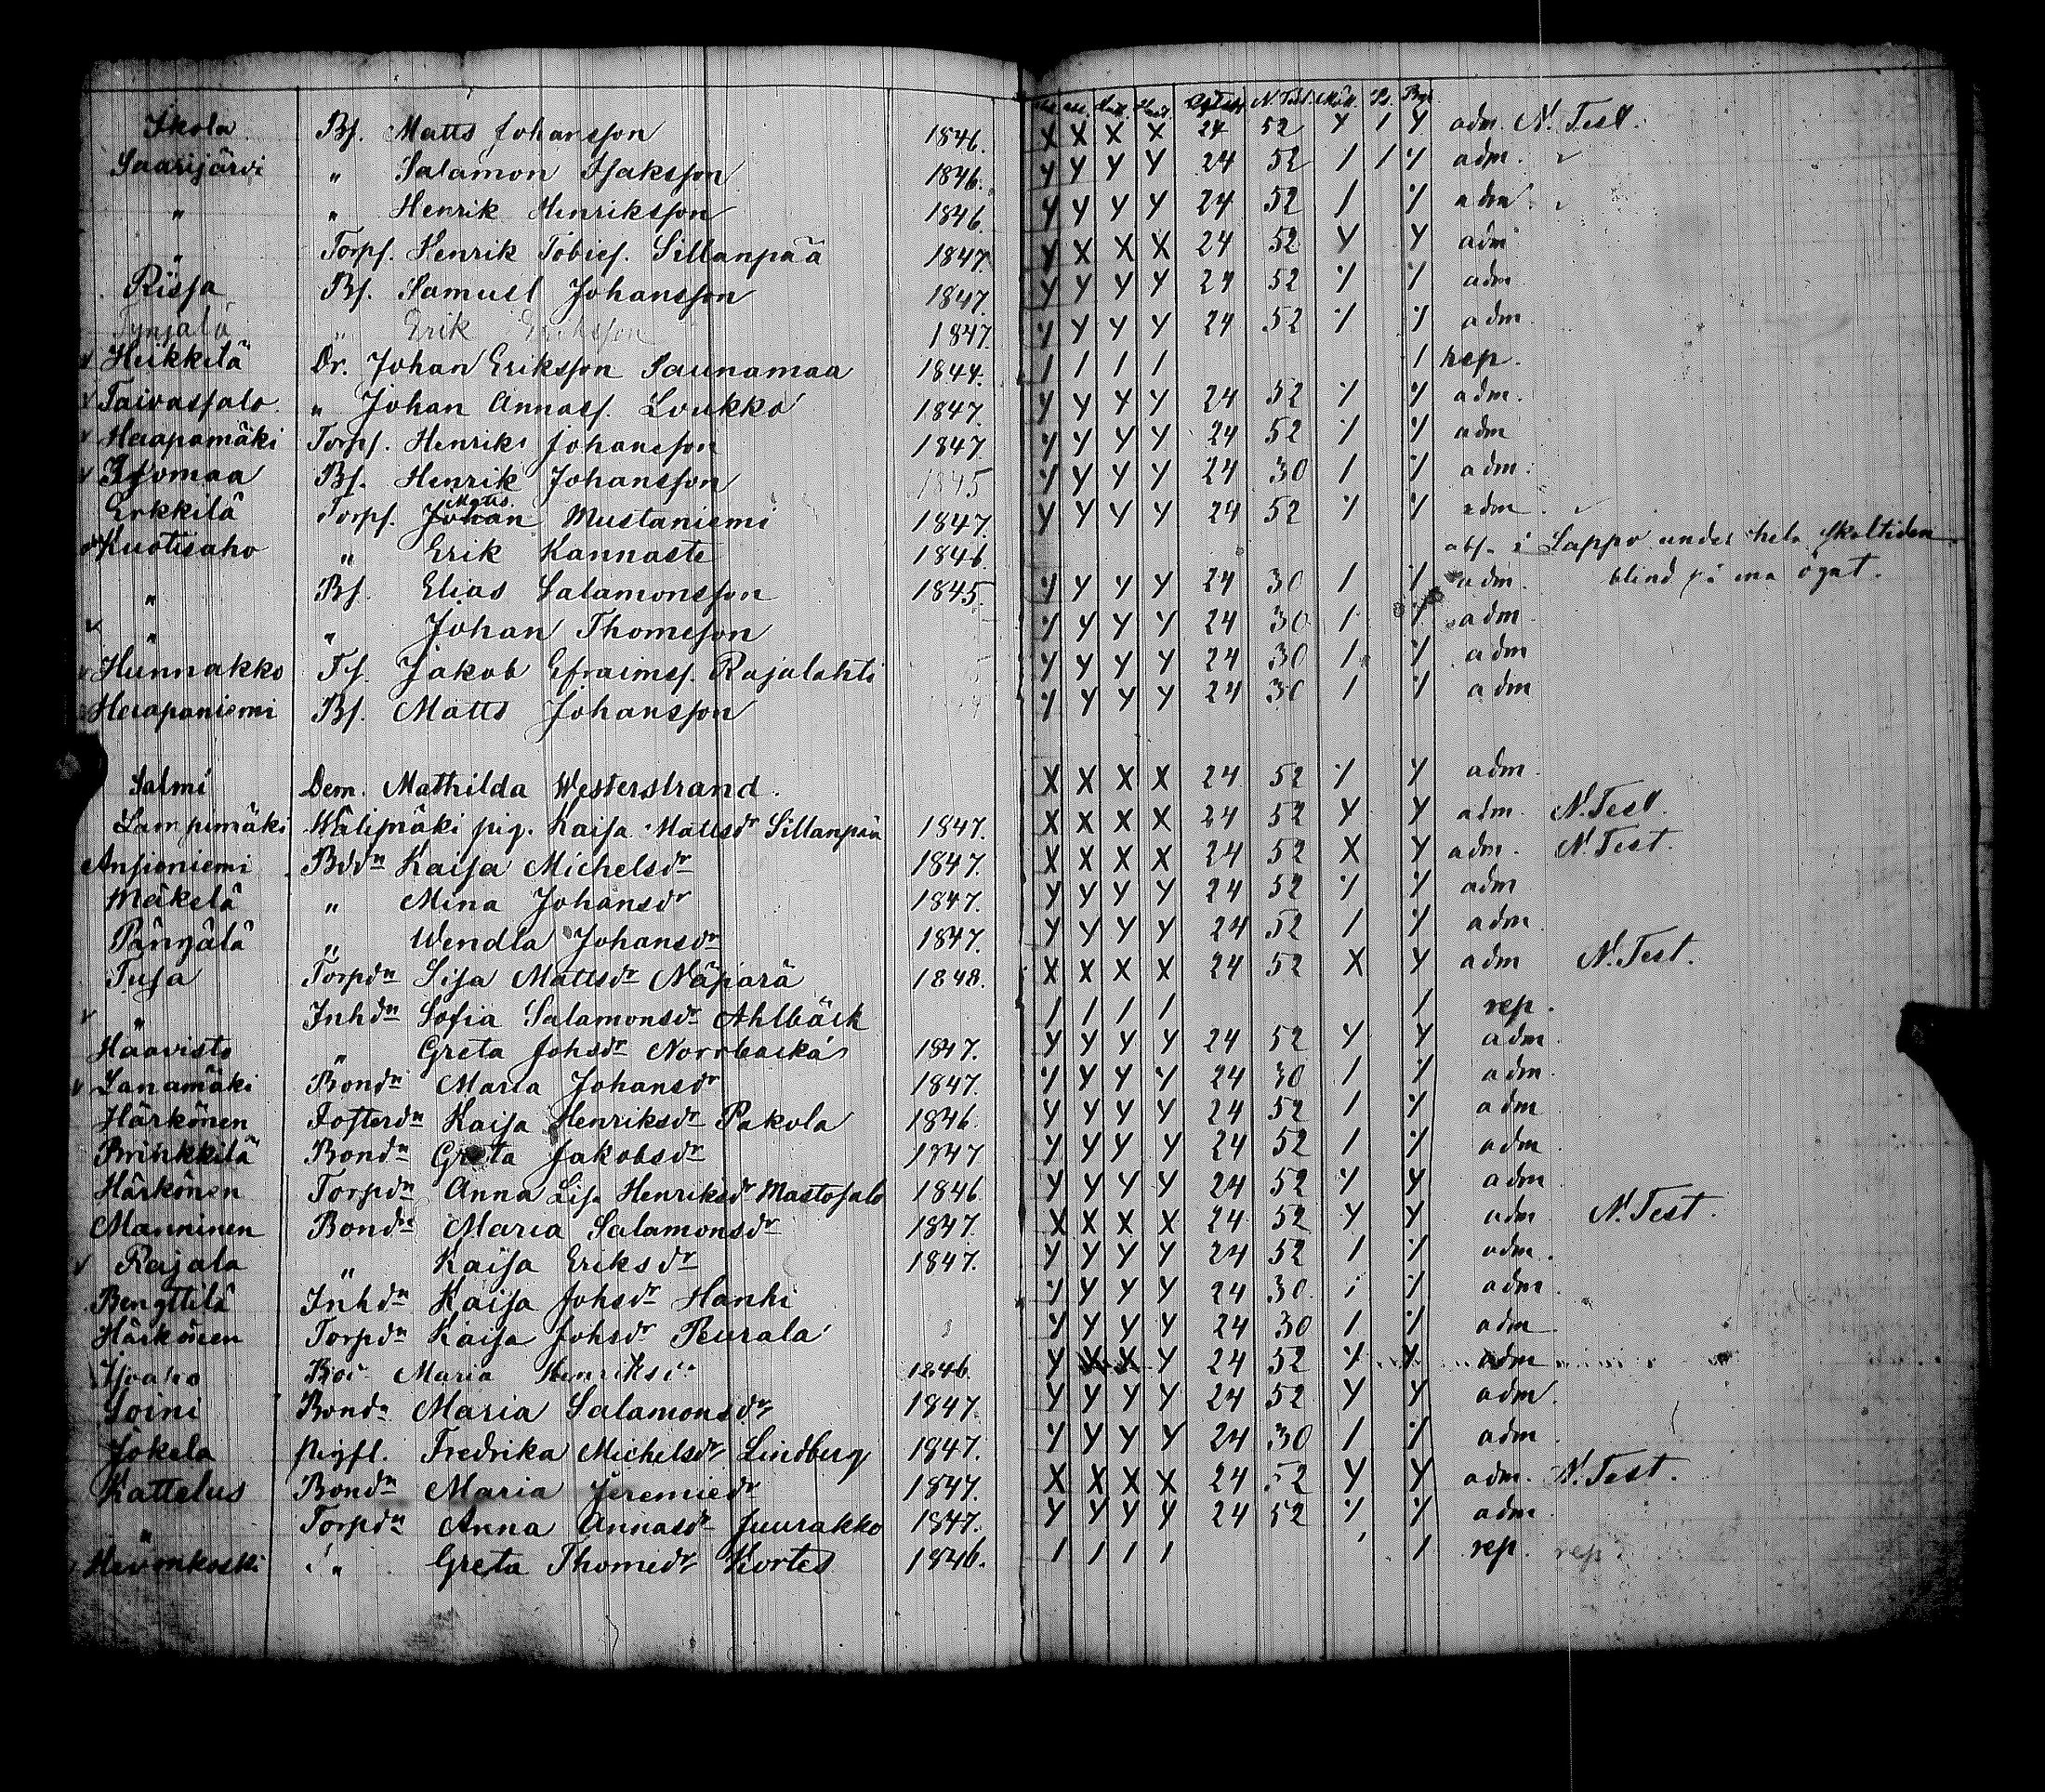 N. Test.
Ikola Bs. Matts Johansson 1846. X X X X 24 52 Y / Y adm. N. Test.
Saarijärvi " Salamon Isaksson 1846. Y Y Y Y 24 52 / / Y adm.
" " Henrik Henriksson 1846. Y Y Y Y 24 52 / Y adm
" Torps. Henrik Tobies. Sillanpää 1847. Y X X X 24 52 Y Y adm
Bs. Samuel Johansson 1847. Y Y Y Y 24 52 Y Y adm
" Erik 1847. Y Y Y Y 24 52 Y Y adm
Heikkilä Dr. Johan Eriksson Saunamaa 1844. / / / / / rep.
Taivassalo " Johan Annass. Loukko 1847. Y Y Y Y 24 52 Y Y adm.
Haapamäki Torps. Henrik Johansson 1847. Y Y Y Y 24 52 Y Y adm
Isomaa Bs. Henrik Johansson 1845 Y Y Y Y 24 30 / Y adm.
Erkkilä Torps. Johan Matts Mustaniemi 1847. Y Y Y Y 24 52 Y Y adm
Kuotesaho " Erik Kannasto 1846. abs. i Lappo under hela skoltiden
" Bs. Elias Salamonsson 1845. Y Y Y Y 24 30 / Y adm. blind på ena ögat.
" " Johan Thomsson Y Y Y Y 24 30 / Y adm
Hünnakko Ts. Jakob Efraimss. Rajalahti Y Y Y Y 24 30 / Y adm
Haapaniemi Bs. Matts Johansson Y Y Y Y 24 30 / Y adm
Salmi Dem. Mathilda Westerstrand. X X X X 24 52 Y Y adm.
Lampimäki Wälimäki pig. Kaisa Mattsdr Sillanpää 1847. X X X X 24 52 Y Y adm. N. Test.
Ansioniemi Bddn Kaisa Michelsdr 1847. X X X X 24 52 X Y adm. N. Test.
Mäkelä " Mina Johansdr 1847. Y Y Y Y 24 52 Y Y adm
Pängälä " Wendla Johansdr 1847. Y Y Y Y 24 52 / Y adm.
Tusa Torpdn Lisa Mattsdr Näpärä 1848. X X X X 24 52 X Y adm N. Test.
" Inhdn Sofia Salamonsdr Ahlbäck / / / / / rep.
Haavisto " Greta Johsdr Norrbacka 1847. Y Y Y Y 24 52 Y Y adm.
Lanamäki Bondn Maria Johansdr 1847. Y Y Y Y 24 30 / Y adm.
Härkönen Fosterdn Kaisa Henriksdr Pakola 1846. Y Y Y Y 24 52 / Y adm
Brinkkilä Bondn Greta Jakobsdr 1847 Y Y Y Y 24 52 / Y adm
Härkönen Torpdn Anna Lisa Henriksdr Mastosalo 1846. Y Y Y Y 24 52 Y Y adm
Manninen Bondn Maria Salamonsdr 1847. X X X X 24 52 Y Y adm N. Test.
Rajala " Kaisa Eriksdr 1847. Y Y Y Y 24 52 / Y adm.
Bengttilä Inhdn Kaisa Johsdr Hanhi Y Y Y Y 24 30 / Y adm
Härkönen Torpdn Kaisa Johsdr Peurala Y Y Y Y 24 30 / Y adm
Maria Henriksd 1846. Y X X Y 24 52 Y Y adm
Soini Bondn Maria Salamonsdr 1847. Y Y Y Y 24 52 Y Y adm.
Jokela pigfl. Fredrika Michelsdr Lindberg 1847. Y Y Y Y 24 30 / Y adm
Kattelus Bondn Maria Jeremiedr 1847. X X X X 24 52 Y Y adm. N. Test.
" Torpdn Anna Annasdr Juurakko 1847. Y Y Y Y 24 52 Y Y adm.
" Greta Thomedr Kortes 1846. / / / / / / rep. rep